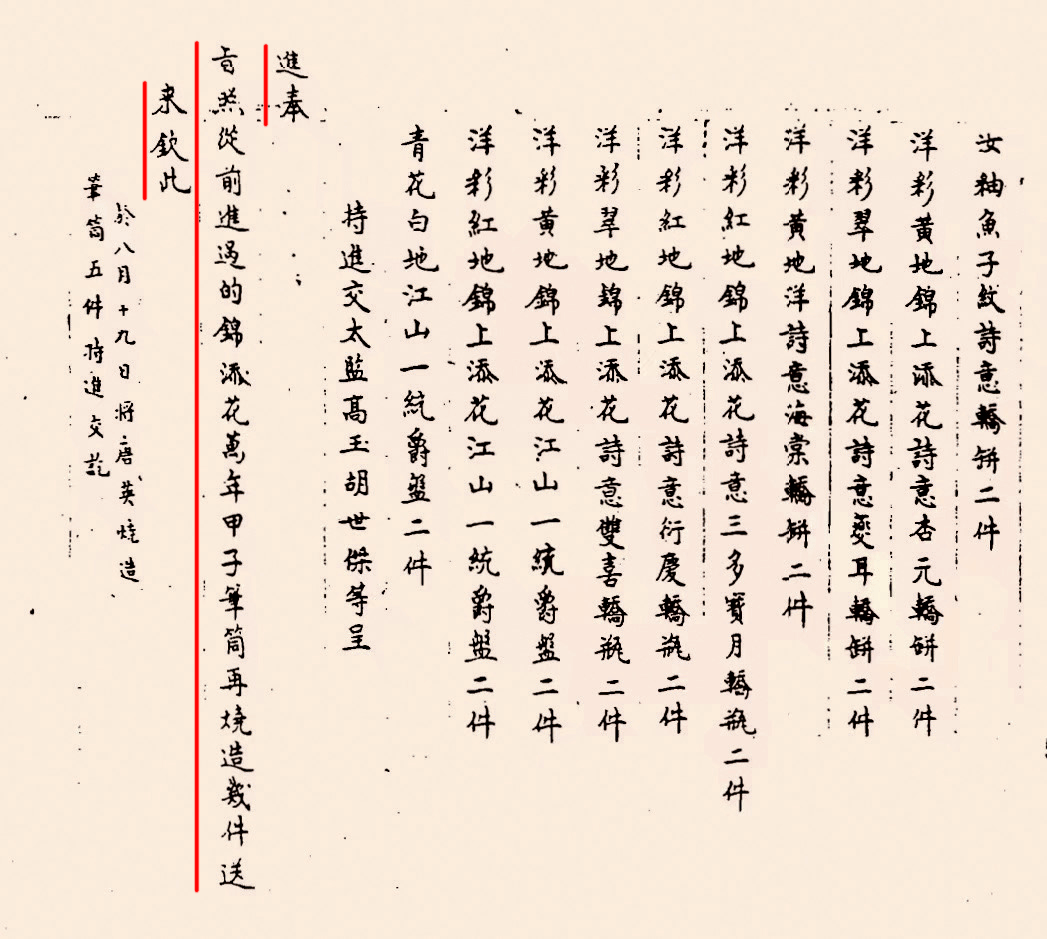 汝釉魚子紋詩意轎缾二件
洋彩黃地錦上添花詩意杏元轎缾二件
洋彩翠地錦上添花詩意夔耳轎缾二件
洋彩黃地洋詩意海棠轎缾二件
洋彩紅地錦上添花詩意三多寶月轎瓶二件
洋彩紅地錦上添花詩意衍慶轎瓶二件
洋彩翠地錦上添花詩意雙喜轎瓶二件
洋彩黃地錦上添花江山一統爵盤二件
洋彩紅地錦上添花江山一統爵盤二件
青花白地江山一統爵盤二件
持進交太監高玉胡世傑等呈
進奉
旨照從前進過的錦添花萬年甲子筆筒再燒造幾件送
來欽此
於八月十九日將唐英燒造
筆筒五件持進交訖